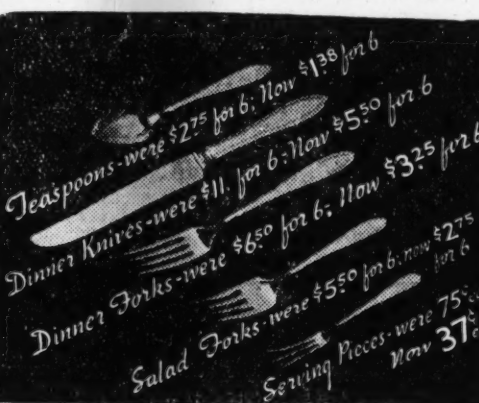 Teaspoons-were $2.75 for 6; Now $1.38 for 6
Dinner Knives-were $11. for 6; Now $5.50 for 6
Dinner Forks-were $6.50 for 6; Now $3.25 for 6
Salad Forks-were $5.50 for 6; now $2.75 for 6
Serving Pieces-were 75c
Now 37